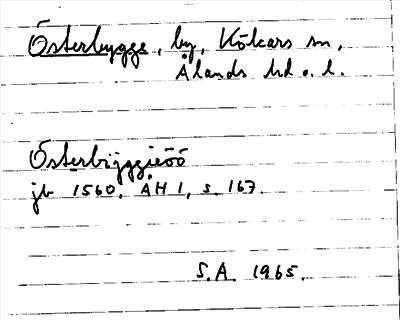 Österbygge, by, Kökars sn,
Ålands hd o. l.
Österbijggieöö
jb 1560, ÅH 1, s. 167.
S.A. 1965.